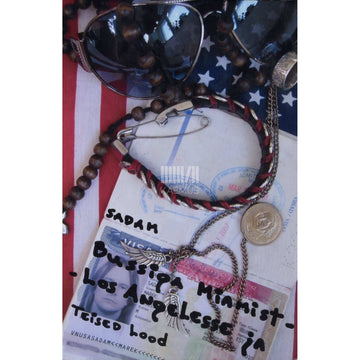 SADAM
Bussiga Miamist-
-Los Angelesse ja
TEISED LOOD
VNUSASADAM<<MAREK<<<<<<